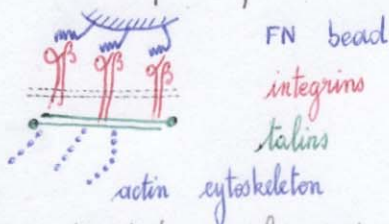 β β β FN bead
integrins
talins
actin cytoskeleton